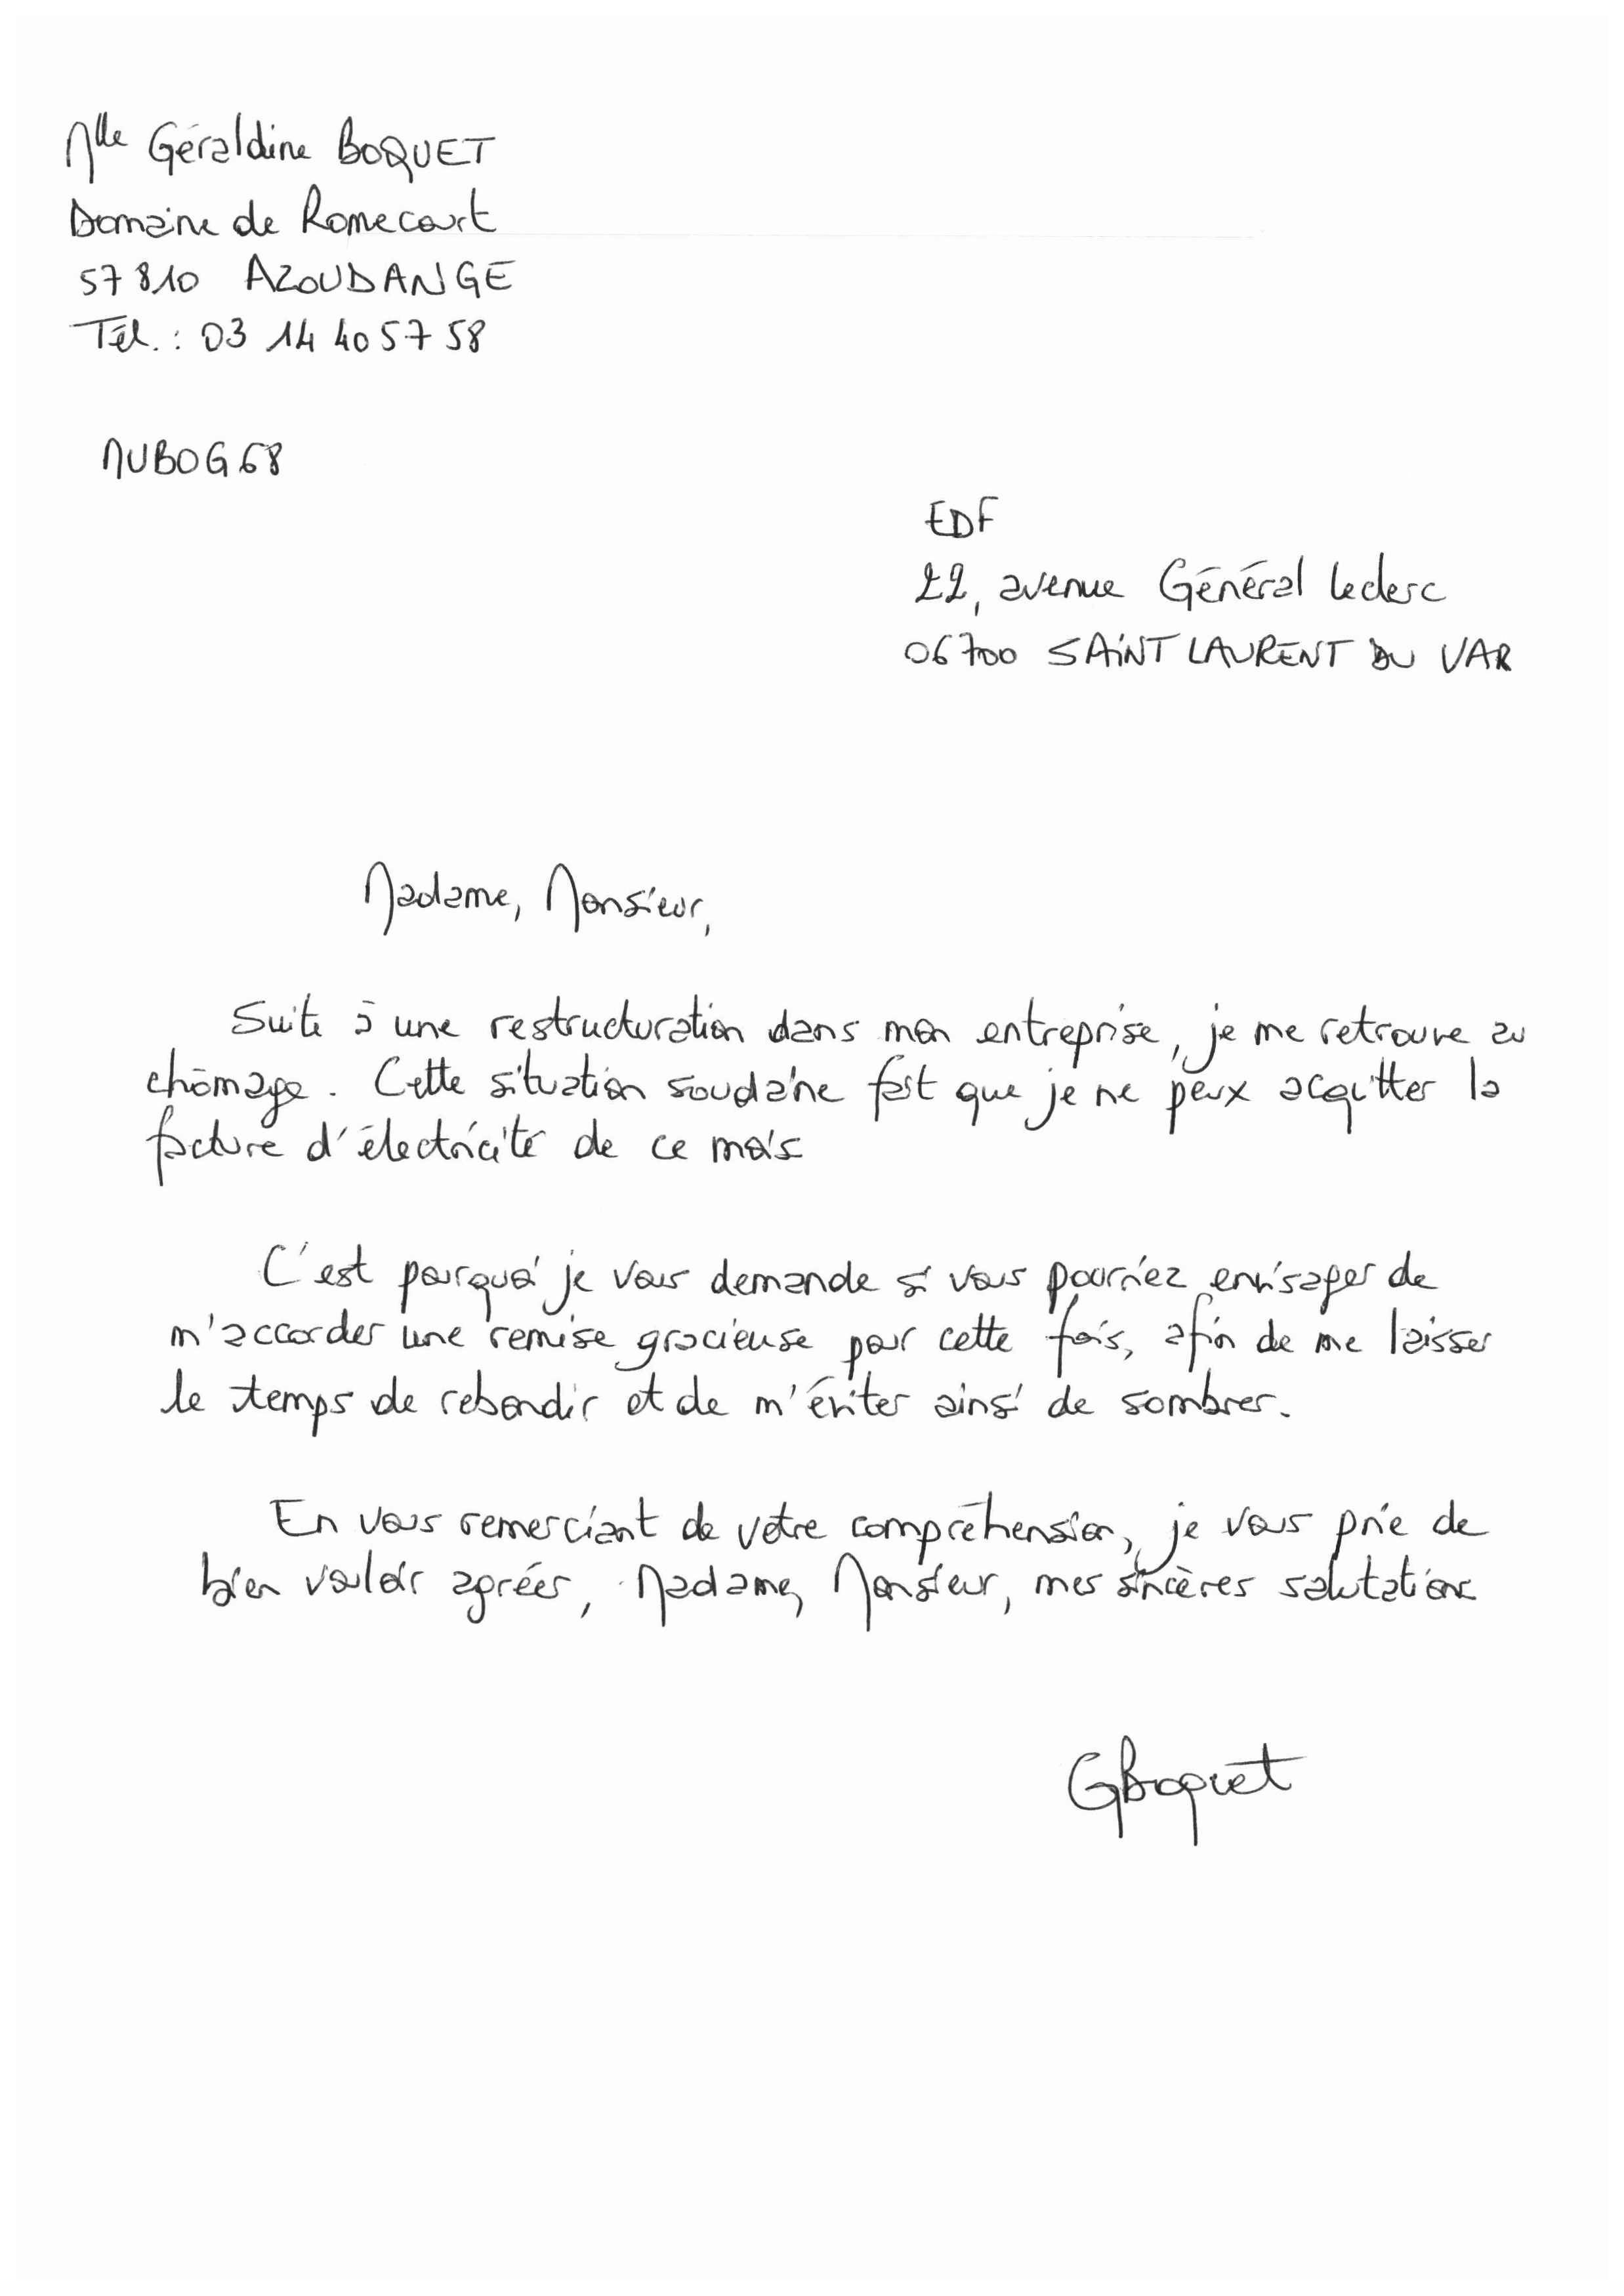 Mlle Géraldine BOQUET
Domaine de Romecourt
57810 AZOUDANGE
Tél. : 03 14 40 57 58
MUBOG68
EDF
22, avenue Général Leclerc
06700 SAINT LAURENT DU VAR
Madame, Monsieur,
Suite à une restructuration dans mon entreprise, je me retrouve au
chômage. Cette situation soudaine fait que je ne peux acquitter la
facture d'électricité de ce mois
C'est pourquoi je vous demande si vous pourriez envisager de
m'accorder une remise gracieuse pour cette fois, afin de me laisser
le temps de rebondir et de m'éviter ainsi de sombrer.
En vous remerciant de votre compréhension, je vous prie de
bien vouloir agréer, Madame, Monsieur, mes sincères salutations
GBoquet